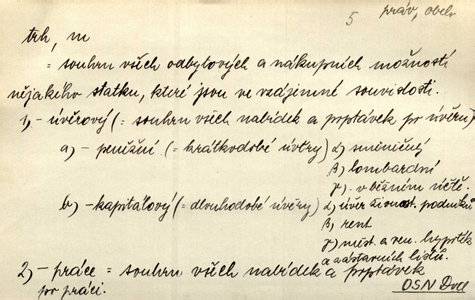 5 práv, obch
trh, m
= souhrn všech odbytových a nákupních možností
nějakého statku, které jsou ve vzájemné souvislosti.
1) - úvěrový (= souhrn všech nabídek a poptávek po úvěru)
a) - peněžní (= krátkodobé úvěry) α) směnečný
β) lombardní
γ) - v běžném účtě.
b) - kapitálový (= dlouhodobé úvěry) α) úvěr živnost. podniků
β) rent
γ) míst. a ven. hypoték
a zástavních listů.
2) - práce = souhrn všech nabídek a poptávek
po práci.
OSN